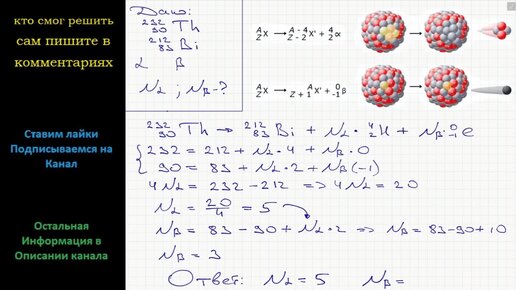 кто смог решить
сам пишите в
комментариях
Ставим лайки
Подписываемся на
Канал
Остальная
Информация в
Описании канала
Дано:
²³²₉₀Th
²¹²₈₃Bi
α β
Nα ; Nβ - ?
ᴬ_Z X → ᴬ⁻⁴_Z₋₂ X' + ⁴₂α
ᴬ_Z X → ᴬ_Z₊₁ X' + ⁰₋₁β
²³²₉₀Th → ²¹²₈₃Bi + Nα · ⁴₂H + Nβ · ⁰₋₁e
232 = 212 + Nα · 4 + Nβ · 0
90 = 83 + Nα · 2 + Nβ (-1)
4Nα = 232 - 212 => 4Nα = 20
Nα = 20/4 = 5
Nβ = 83 - 90 + Nα · 2 => Nβ = 83 - 90 + 10
Nβ = 3
Ответ: Nα = 5 Nβ =